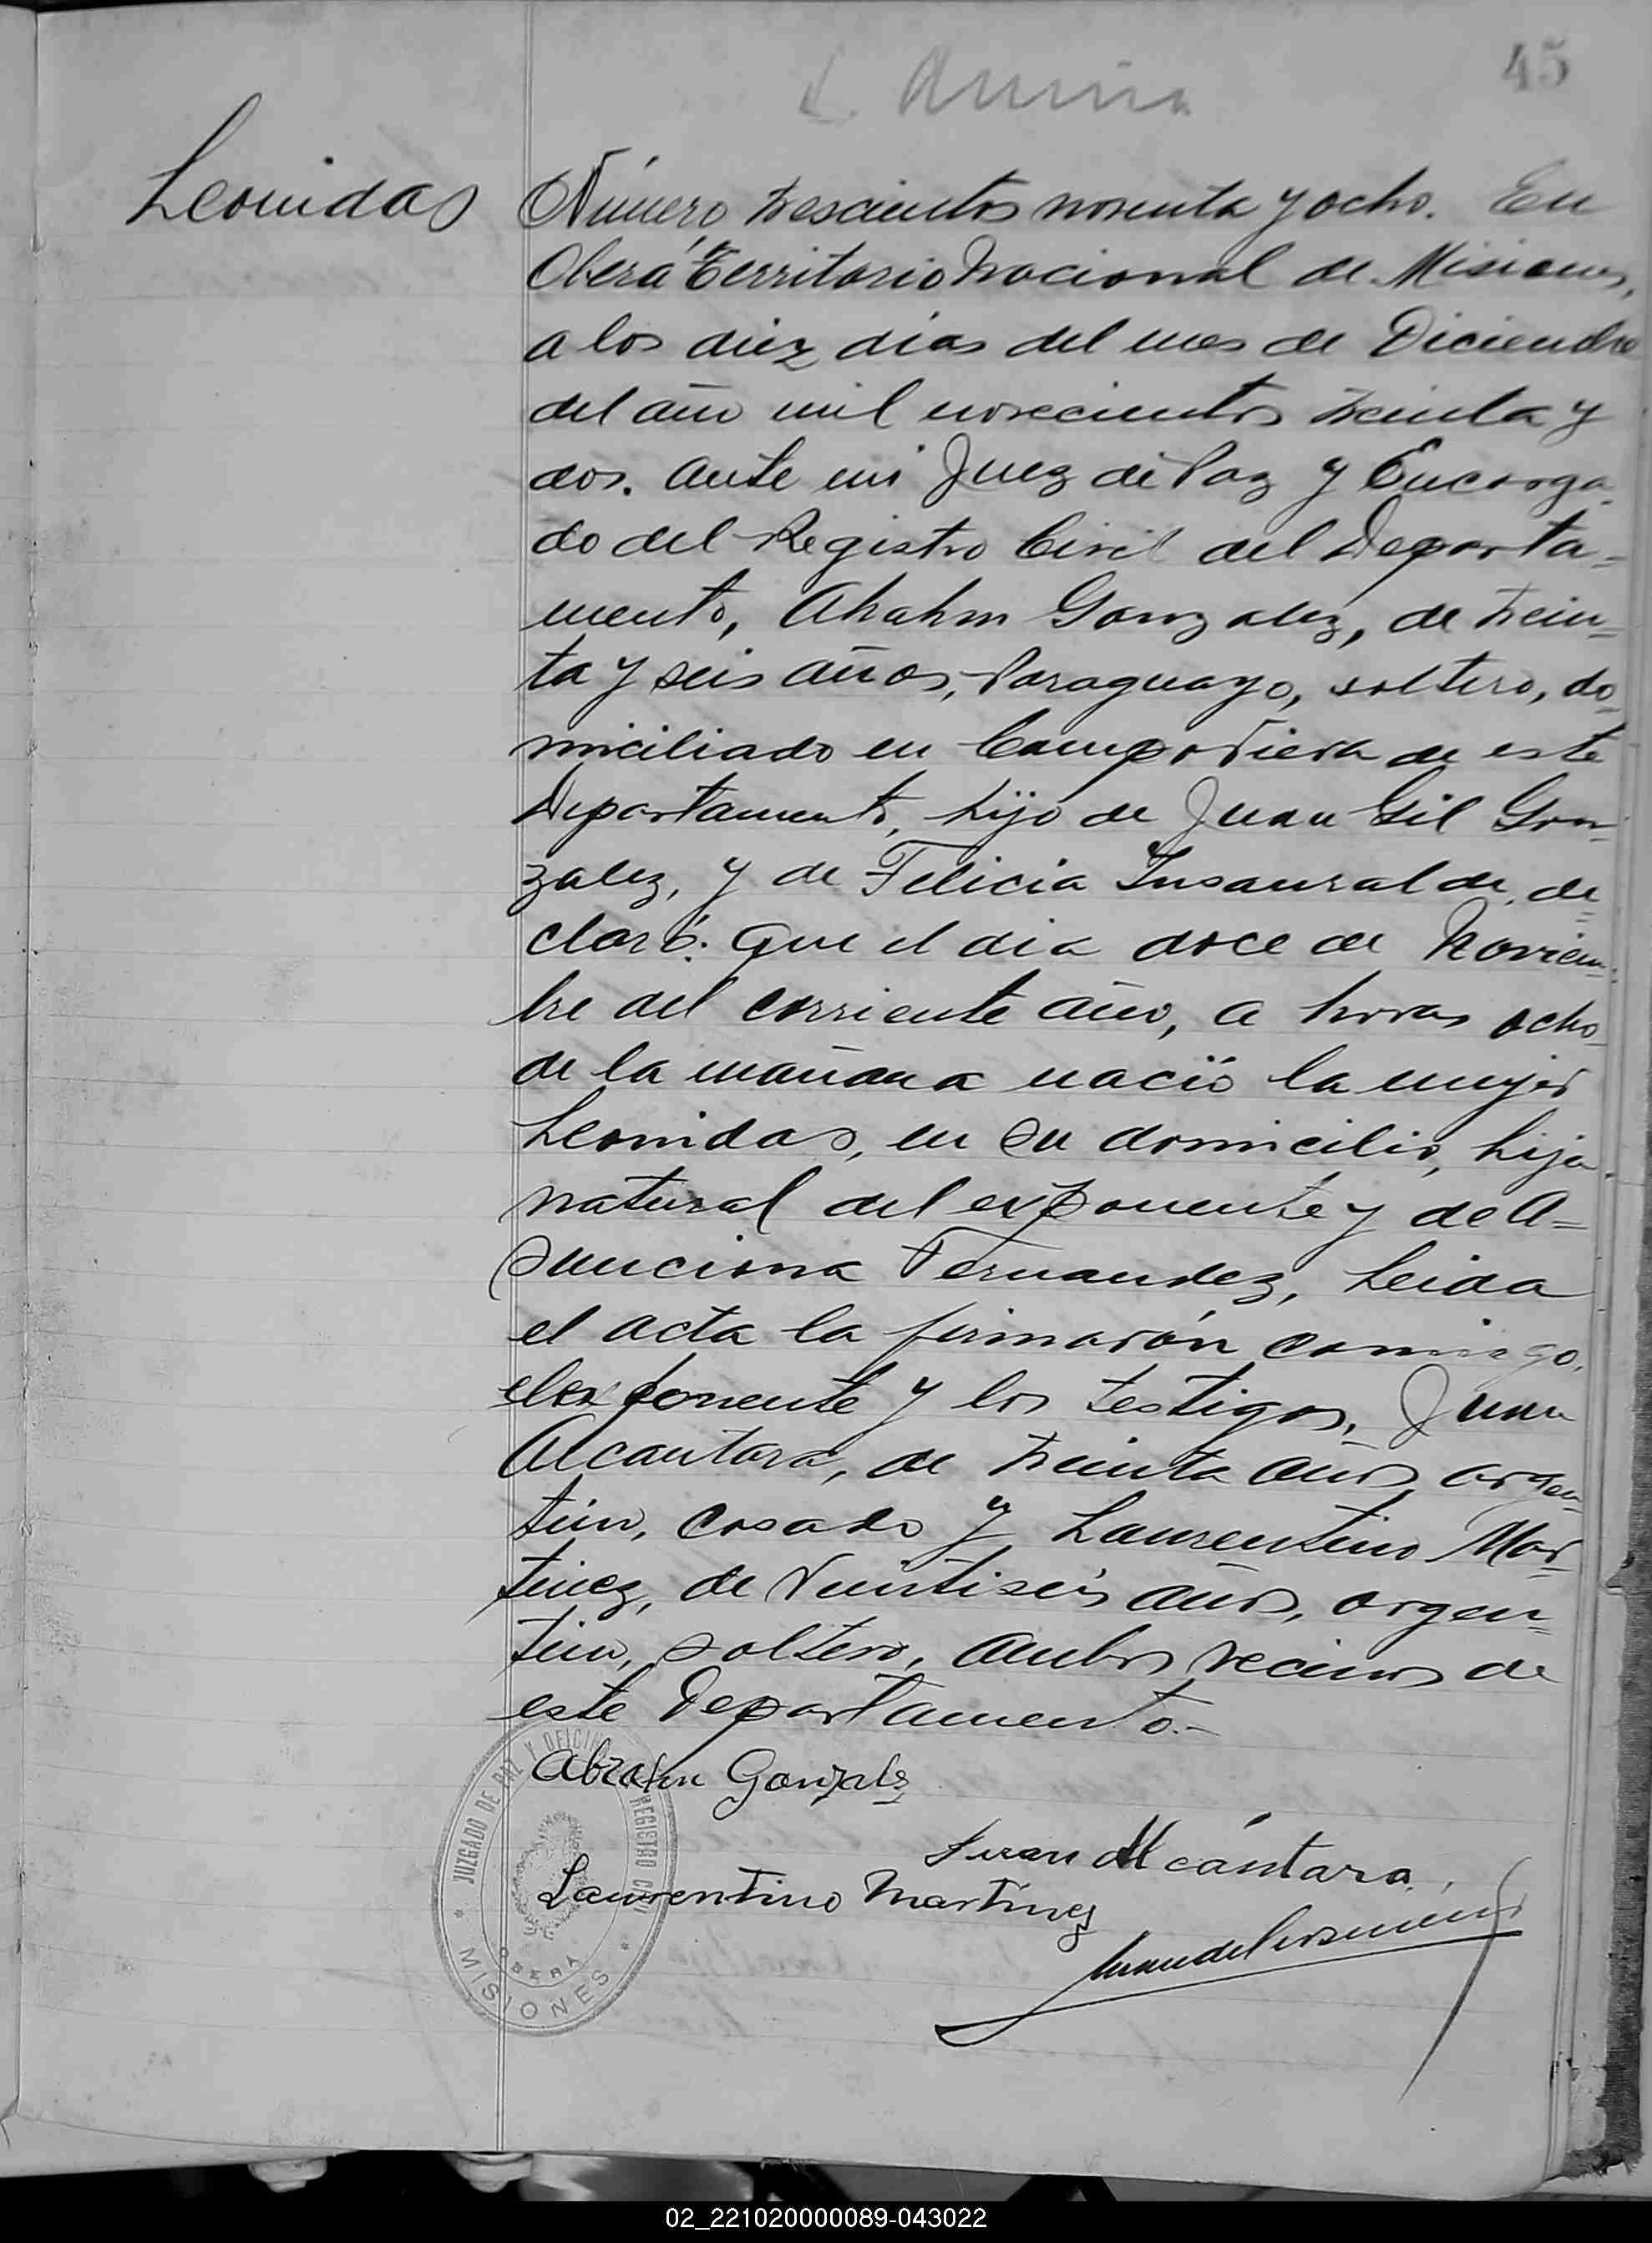 45
Leonidas
Número trescientos noventa y ocho. En
Oberá Territorio Nacional de Misiones,
a los diez dias del mes de Diciembre
del año mil novecientos treinta y
dos. ante mi Juez de Paz y Encarga-
do del Registro Civil del Departa-
mento, Abahm Gonzalez, de trein-
ta y seis años, Paraguayo, soltero, do-
miciliado en Campo Viera de este
Departamento, hijo de Juan Gil Gon-
zalez, y de Felicia Insauralde, de-
claró: que el dia doce de Noviem-
bre del corriente año, a horas ocho
de la mañana nació la mujer
Leonidas, en su domicilio, hija
natural del exponente y de A-
sunciona Fernandez, Leida
el acta la firmarón conmigo,
el exponente y los testigos, Juan
Alcantara, de treinta años argen-
tino, casado y Laurentino Mar-
tinez, de veintiseis años, argen-
tino, soltero, ambos vecinos de
este Departamento.-
Abrahm Gonzalz
Juan Alcántara
Laurentino Martínez
JUZGADO DE PAZ Y OFICINA REGISTRO CIVIL
OBERA
MISIONES
02_221020000089-043022